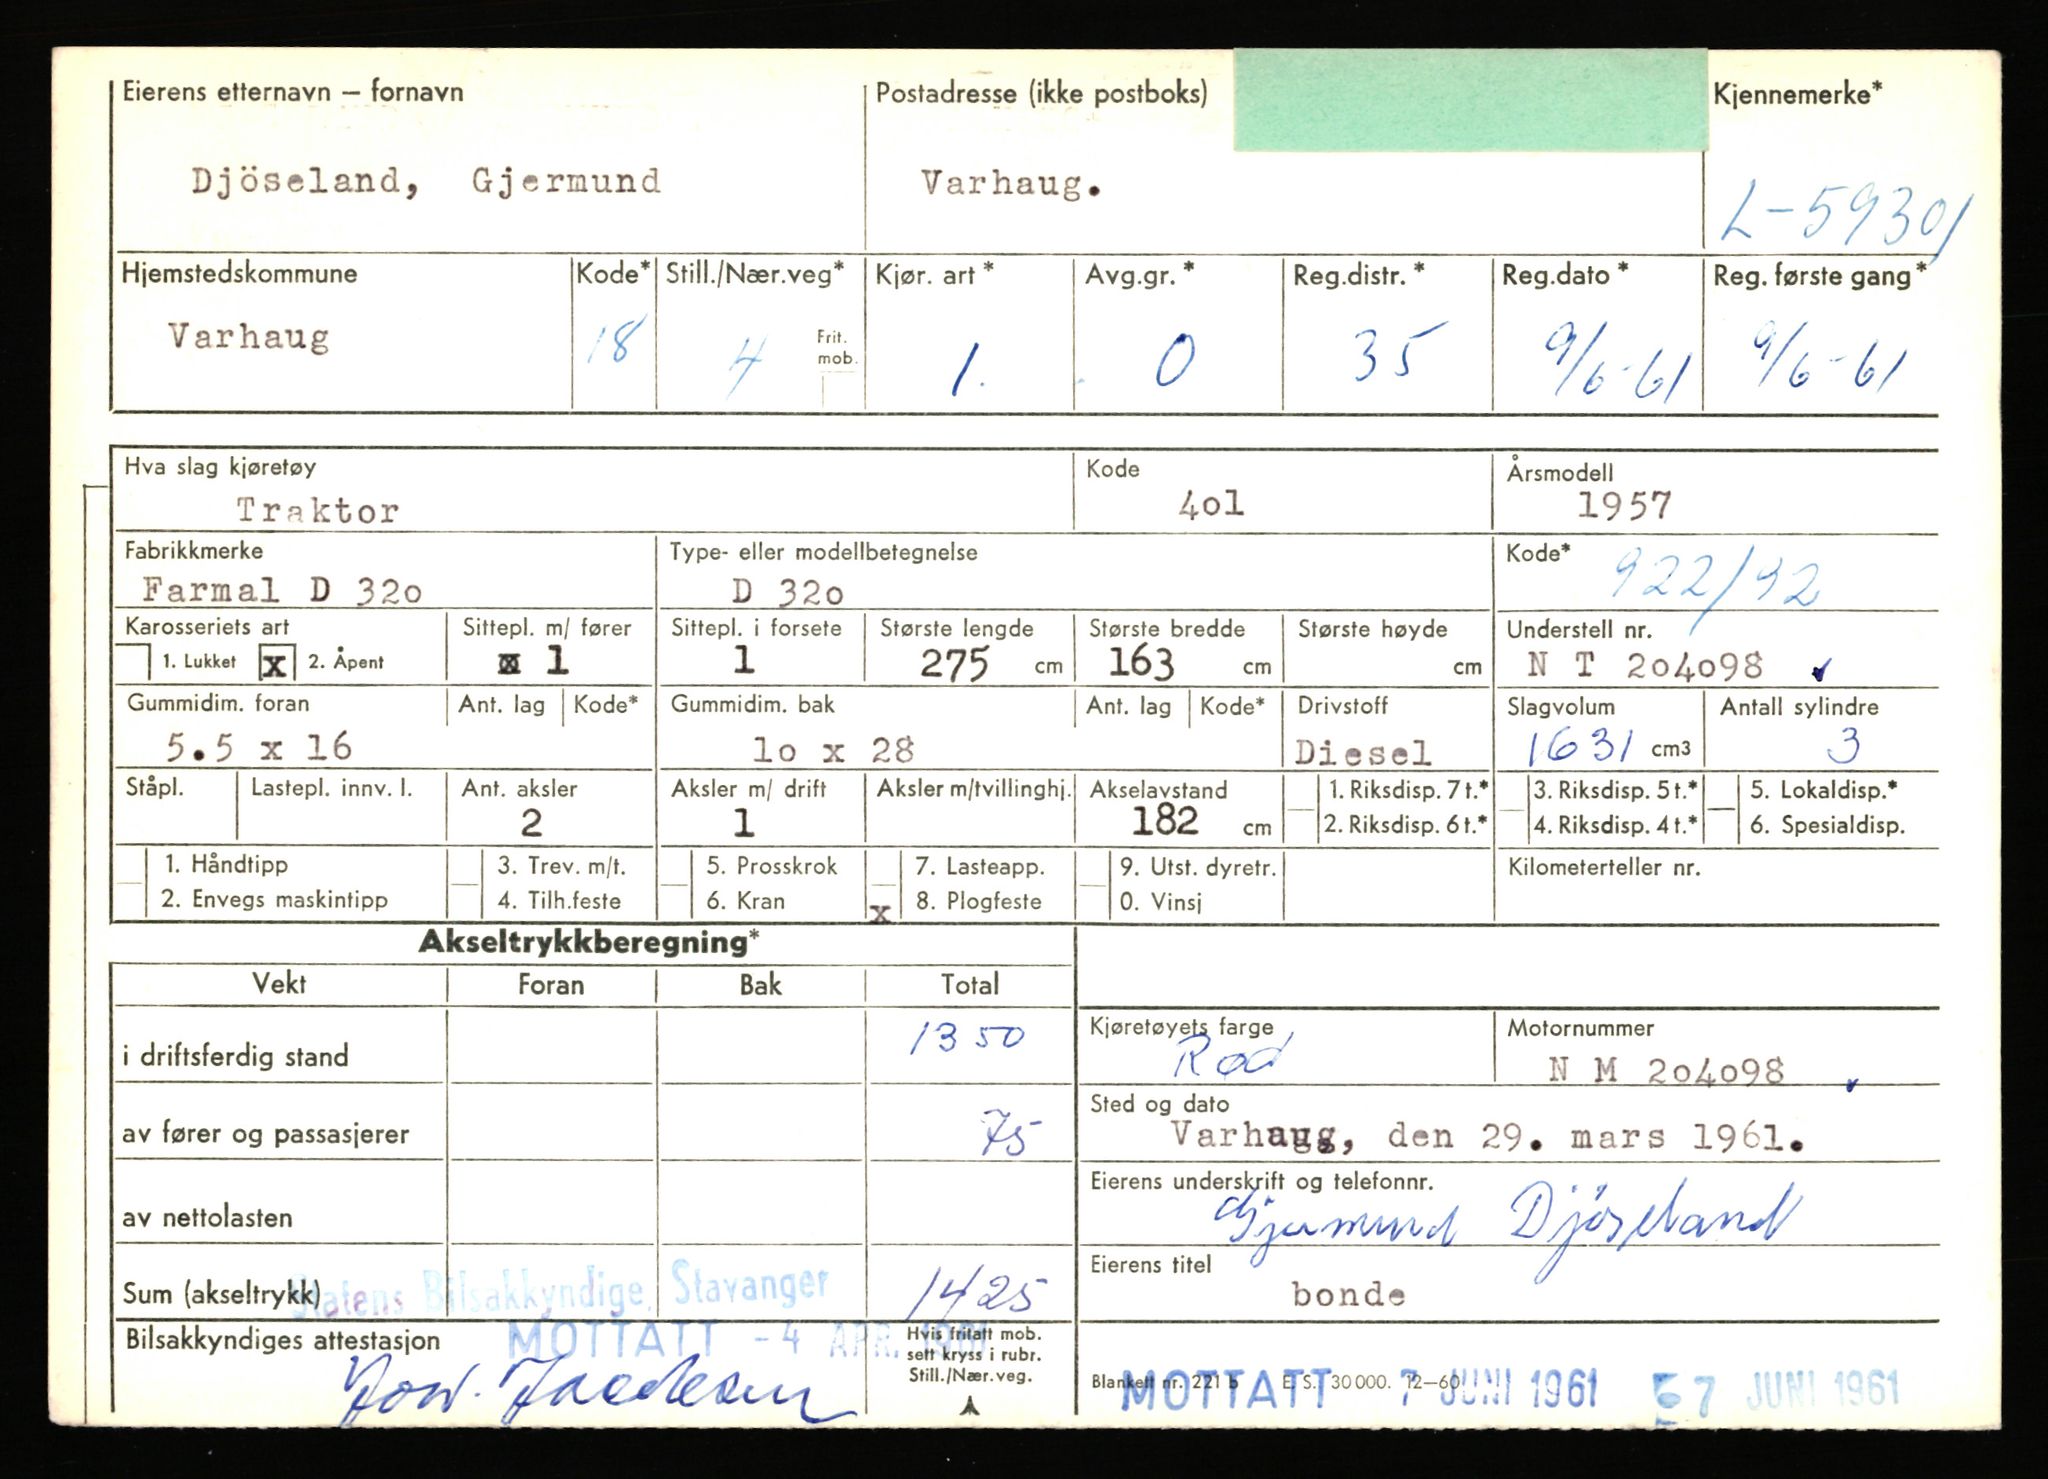 Eierens etternavn – fornavn Postadresse (ikke postboks) Kjennemerke*
Djöseland, Gjermund Varhaug. L-59301
Hjemstedskommune Kode* Still./Nær.veg* Kjør. art* Avg.gr.* Reg.distr.* Reg.dato* Reg. første gang*
Varhaug 18 4 Frit. mob. 1. 0 35 9/6-61 9/6-61
Hva slag kjøretøy Kode Årsmodell
Traktor 4o1 1957
Fabrikkmerke Type- eller modellbetegnelse Kode*
Farmal D 32o D 32o 922/92
Karosseriets art Sittepl. m/ fører Sittepl. i forsete Største lengde Største bredde Største høyde Understell nr.
1. Lukket x 2. Åpent 1 1 275 cm 163 cm cm N T 204098
Gummidim. foran Ant. lag Kode* Gummidim. bak Ant. lag Kode* Drivstoff Slagvolum Antall sylindre
5.5 x 16 1o x 28 Diesel 1631 cm3 3
Ståpl. Lastepl. innv. l. Ant. aksler Aksler m/ drift Aksler m/tvillinghj. Akselavstand 1. Riksdisp. 7 t.* 3. Riksdisp. 5 t.* 5. Lokaldisp.*
2 1 182 cm 2. Riksdisp. 6 t.* 4. Riksdisp. 4 t.* 6. Spesialdisp.
1. Håndtipp 3. Trev. m/t. 5. Prosskrok 7. Lasteapp. 9. Utst. dyretr. Kilometerteller nr.
2. Envegs maskintipp 4. Tilh.feste 6. Kran x 8. Plogfeste 0. Vinsj
Akseltrykkberegning*
Vekt Foran Bak Total
i driftsferdig stand 1350
Kjøretøyets farge Motornummer
Rød N M 204098
av fører og passasjerer 75
Sted og dato
Varhaug, den 29. mars 1961.
av nettolasten
Eierens underskrift og telefonnr.
Gjermund Djöseland
Sum (akseltrykk) 1425
Eierens titel
bonde
Statens Bilsakkyndige, Stavanger
MOTTATT - 4 APR. 1961
Bilsakkyndiges attestasjon
Hvis fritatt mob.
sett kryss i rubr.
Still./Nær.veg.
Blankett nr. 221 b E. S. 30 000. 12–60
MOTTATT 7 JUNI 1961 7 JUNI 1961